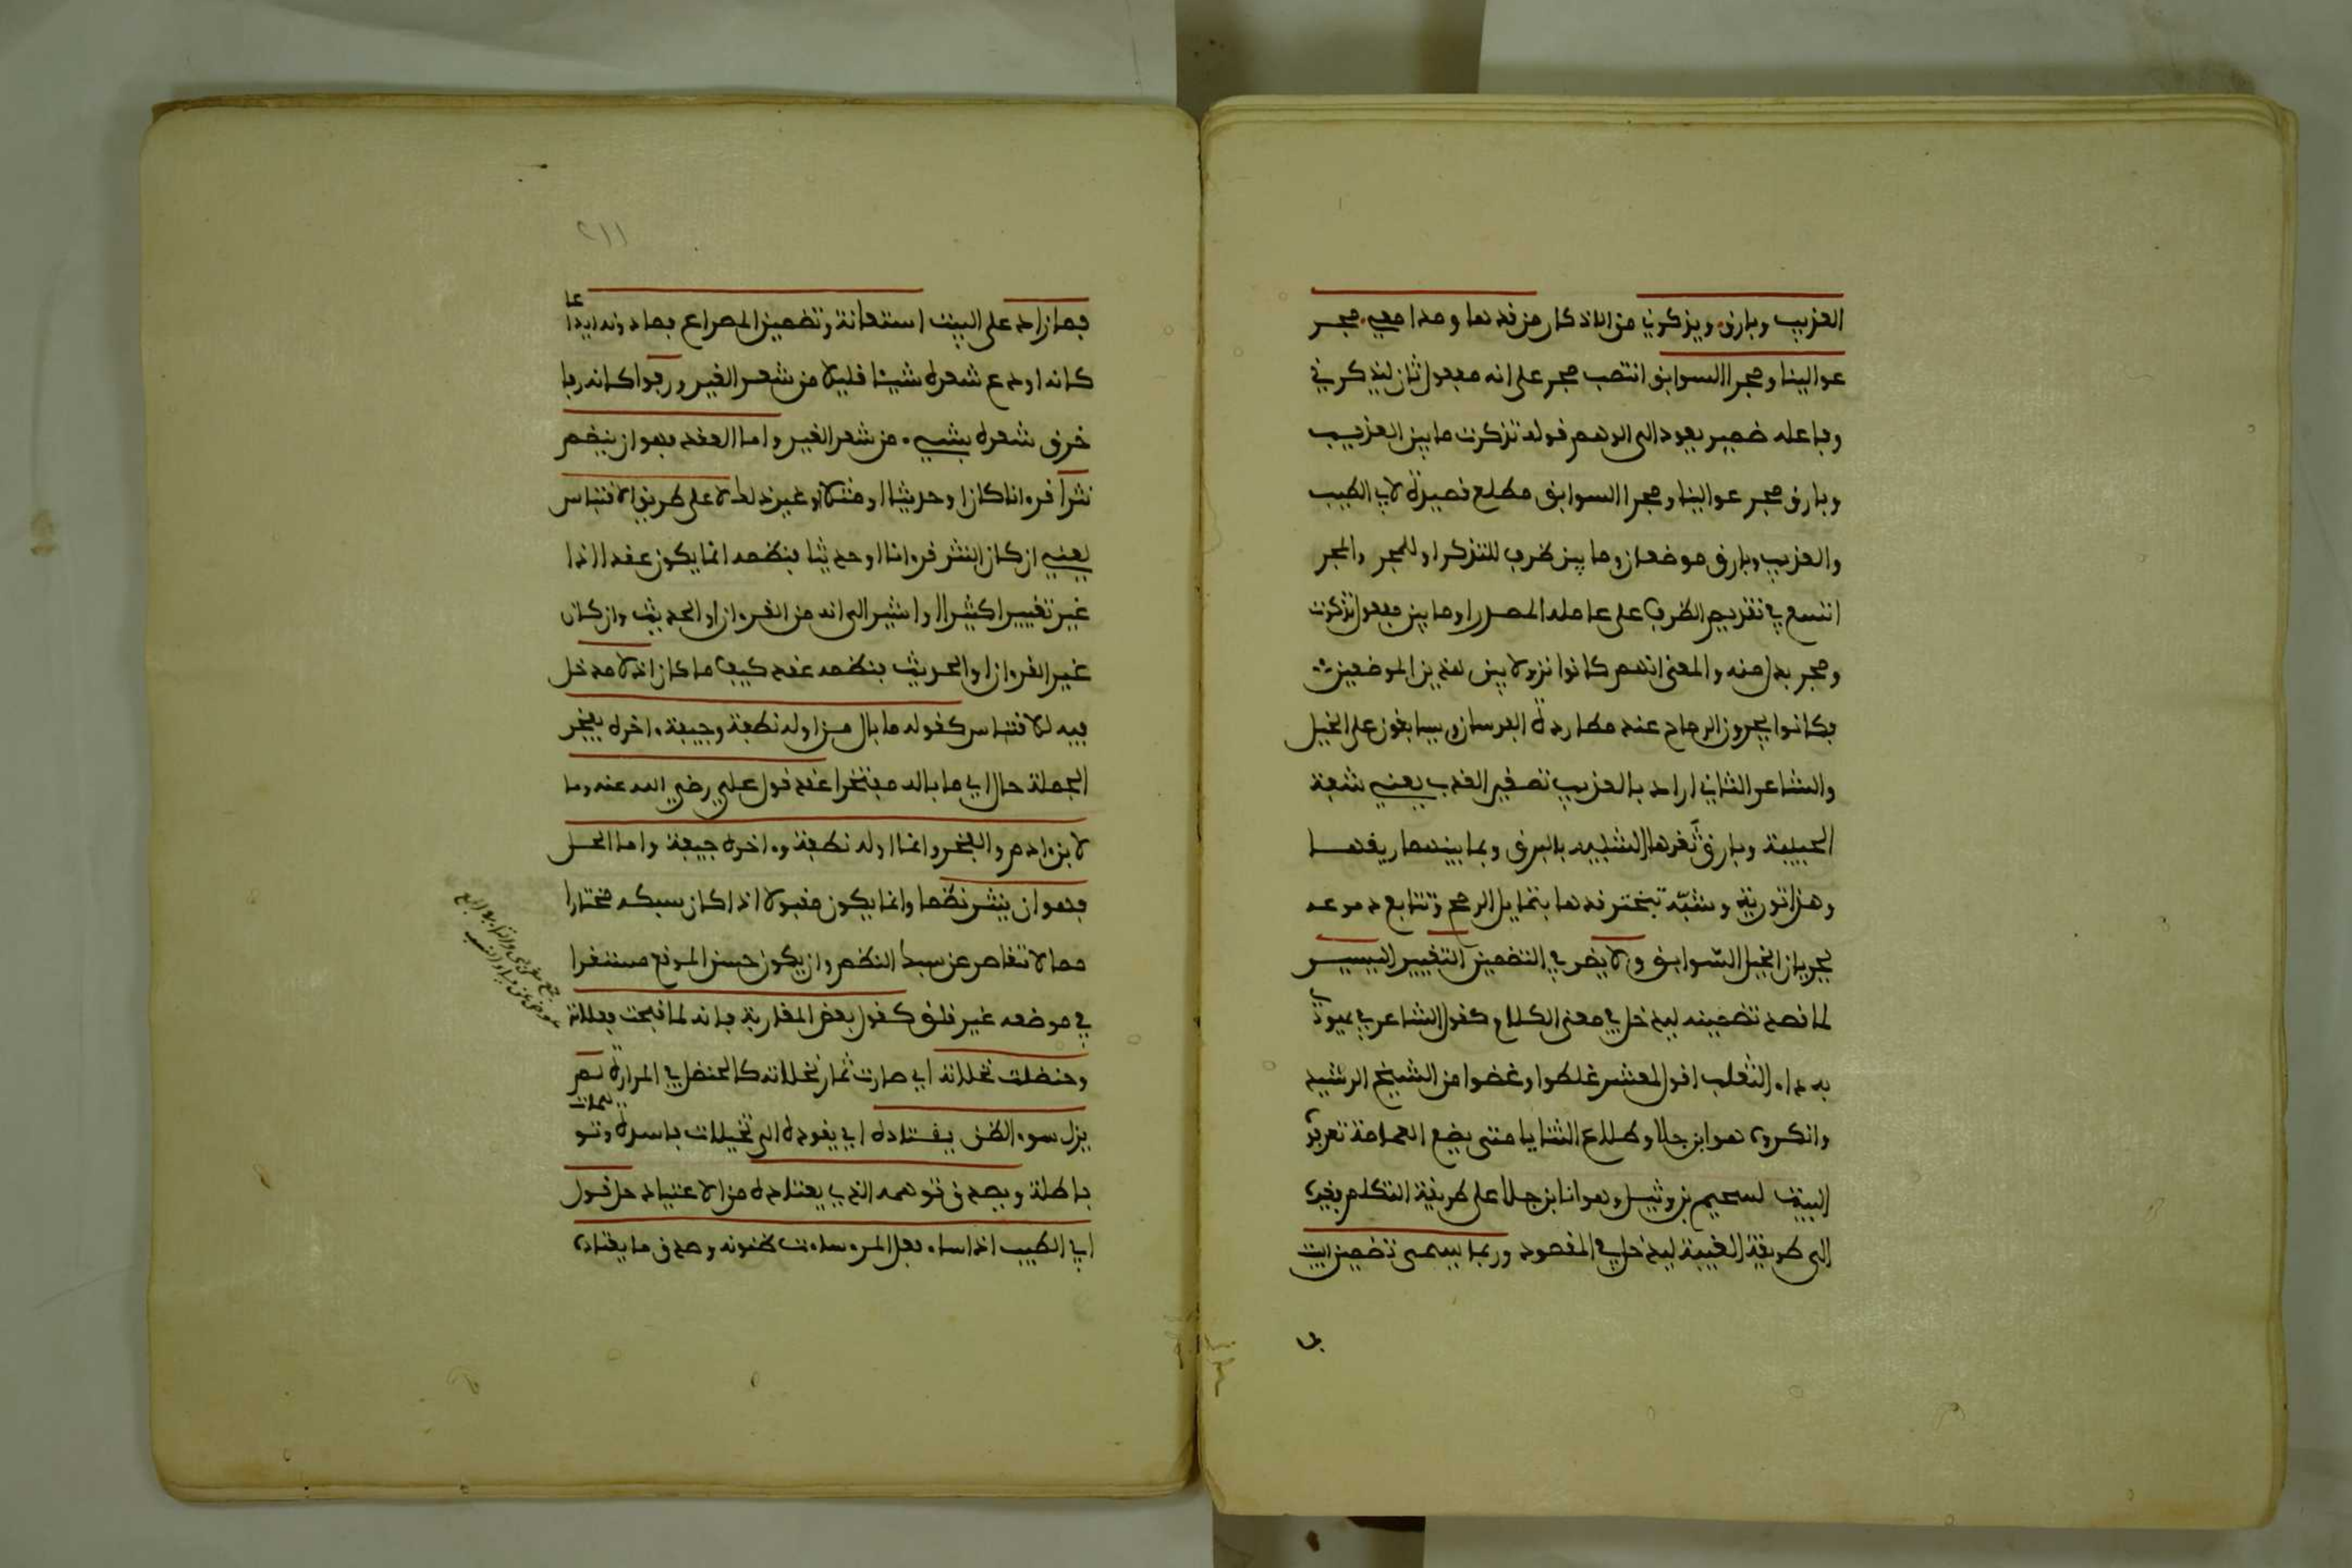 العذيب وبارق ويذكرني من الاذكار من قدها ومدامعي مجر
عوالينا ومجرا السوابق انتصب مجر على انه مفعول ثان ليذكرني
وفاعله ضمير يعود الى الوهم قوله تذكرت ما بين العذيب
وبارق مجر عوالينا ومجرا السوابق مطلع قصيدة لابي الطيب
والعذيب وبارق موضعان وما بين ظرف للتذكر او للمجر والمجر
اتسع في تقديم الظرف على عامله المصدر او ما بين مفعول تذكرت
ومجر بدل منه والمعنى انهم كانوا نزولا بين هذين الموضعين
فكانوا يجرون الرماح عند مطاردة الفرسان ويسابقون على الخيل
والشاعر الثاني اراد بالعذيب تصغير العذب يعني شفة
الحبيبة وبارق ثغرها الشبيه بالبرق وبما بينهما ريقهما
وهذا تورية وشبّه تبختر قدها بتمايل الرمح وتتابع دموعه
بجريان الخيل السّوابق ولا يضر في التضمين التغيير اليسير
لما قصد تضمينه ليدخل في معنى الكلام كقول الشاعر في يهودي
به داء الثعلب اقول لمعشر غلطوا وغضوا من الشيخ الرشيد
وانكروه هو ابن جلا وطلاع الثنايا متى يضع العمامة تعرفوه
البيت لسحيم بن وثيل وهو انا ابن جلا على طريقة التكلم فغيره
الى طريقة الغيبة ليدخل في المقصود وربما يسمى تضمين البيت
٢١١
فما زاد على البيت استعانة وتضمين المصراع فما دونه ايداعا
كانه اودع شعره شيئا قليلا من شعر الغير ورفوا كانه رفا
خرق شعره بشيء من شعر الغير واما العقد فهو ان ينضم
نثرا قرءانا كان او حديثا او مثلا او غير ذلك لا على طريق الاقتباس
يعني ان كان النثر قرءانا او حديثا فنظمه انما يكون عقدا اذا
غير تغييرا كثيرا او اشير الى انه من القرءان او الحديث وان كان
غير القرءان او الحديث فنظمه عقد كيف ما كان اذ لا مدخل
فيه للاقتباس كقوله ما بال من اوله نطفة وجيفة ءاخره يفخر
الجملة حال اي ما باله مفتخرا عقد قول علي رضي الله عنه وما
لابن ءادم والفخر وانما اوله نطفة وءاخره جيفة واما الحل
فهو ان ينثر نظما وانما يكون مقبولا اذا كان سبكه مختارا
مما لا تقاصر عن سبك النظم وان يكون حسن الموقع مستقرا
في موضعه غير قلق كقول بعض المغاربة فانه لما قبحت فعلاته
وحنضلت نخلاته اي صارت ثمار نخلاته كالحنضل في المرارة لم
يزل سوء الظن يقتاده اي يقوده الى تخيلات فاسدة وتوهمات
باطلة ويصدق توهمه الذي يعتاده من الاعتياد حل قول
ابي الطيب اذا ساء فعل المرء ساءت ظنونه وصدق ما يعتاده